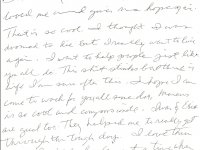 loved me and gave me hope again.
That is so cool. I thought I was
doomed to die but I really want to live
again. I want to help people just like
you all do. This shit stinks but there is
life I am sure after this. I hope I can
come to work for you all some day. Moneens
is so cool and compassionate.
are great too. They helped me to really get
through this tough day. I love them